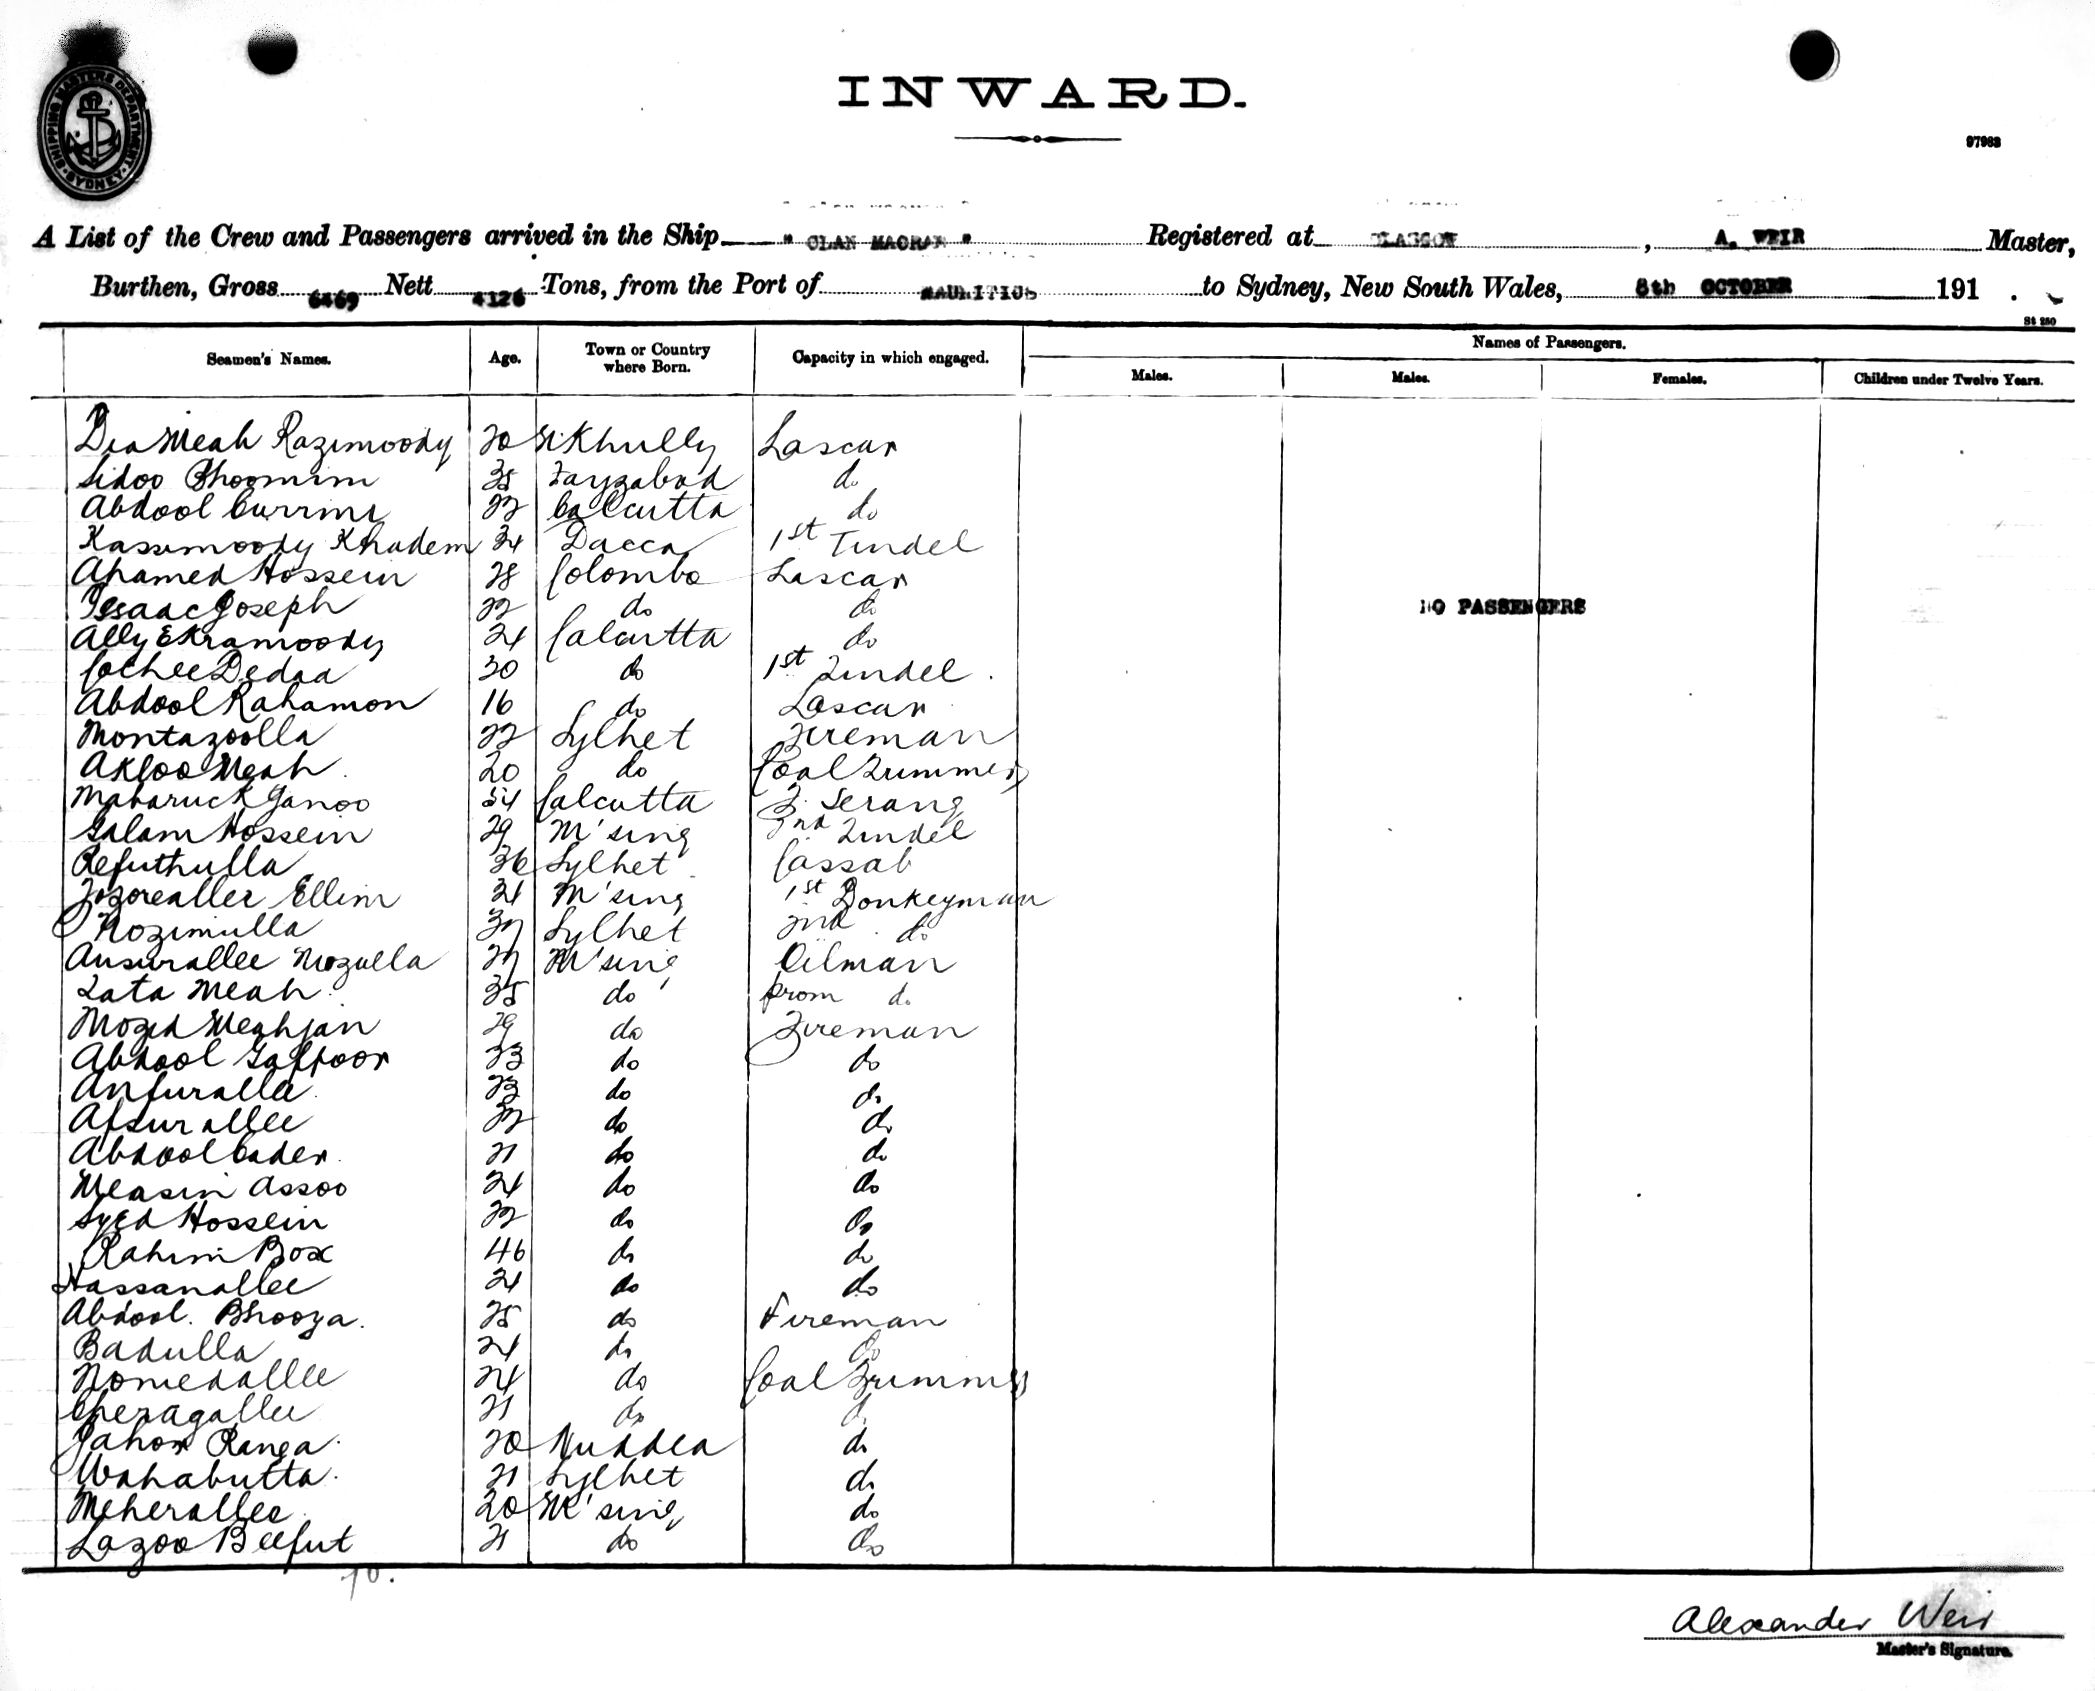 SHIPPING MASTERS DEPARTMENT SYDNEY
INWARD.
97963
A List of the Crew and Passengers arrived in the Ship "CLAN MACRAE" Registered at GLASGOW, A. WEIR Master,
Burthen, Gross 6469 Nett 4126 Tons, from the Port of MAURITIUS to Sydney, New South Wales, 8th OCTOBER 191 .
St 250
Seamen's Names. Age. Town or Country where Born. Capacity in which engaged. Names of Passengers.
Males. Males. Females. Children under Twelve Years.
Dia Meah Razimoody 20 Lascar
Sidoo Bhoomim 35 Fayzabad do
Abdool Currim 22 Calcutta do
Kassimoody Khadem 34 Dacca 1st Tindel
Ahamed Hossein 28 Colombo Lascar
Issac Joseph 22 do do
NO PASSENGERS
Ally Ekramoody 24 Calcutta do
Cochee Dedaa 30 do 1st Tindel
Abdool Rahamon 16 do Lascar
Montazoolla 22 Sylhet Fireman
Akloo Meah 20 do Coal Trimmer
Mabaruck Janoo 54 Calcutta F. Serang
Galam Hossein 29 M'sing 2nd Tindel
Refuthulla 36 Sylhet Cassab
Jozorealler Ellim 31 M'sing 1st Donkeyman
Rozimulla 37 Sylhet 2nd do
Ansurallee Mozuella 27 M'sing Oilman
Lata Meah 35 do from do
Mozid Meahjan 29 do Fireman
Abdool Gaffoor 33 do do
Anfurallee 23 do do
Afsurallee 22 do do
Abdool Cader 21 do do
Measin Assoo 24 do do
Syed Hossein 22 do do
Rahim Box 46 do do
Hassanallee 24 do do
Abdool. Bhooya. 25 do Fireman
Badulla 24 do do
Nomedallee 24 do Coal Trimmer
Cheragallee 21 do do
Jahor Ranga 20 Nuddea do
Wahabutta 21 Sylhet do
Meherallee 20 M'sing do
Lazoo Beefut 21 do do
Alexander Weir
Master's Signature.